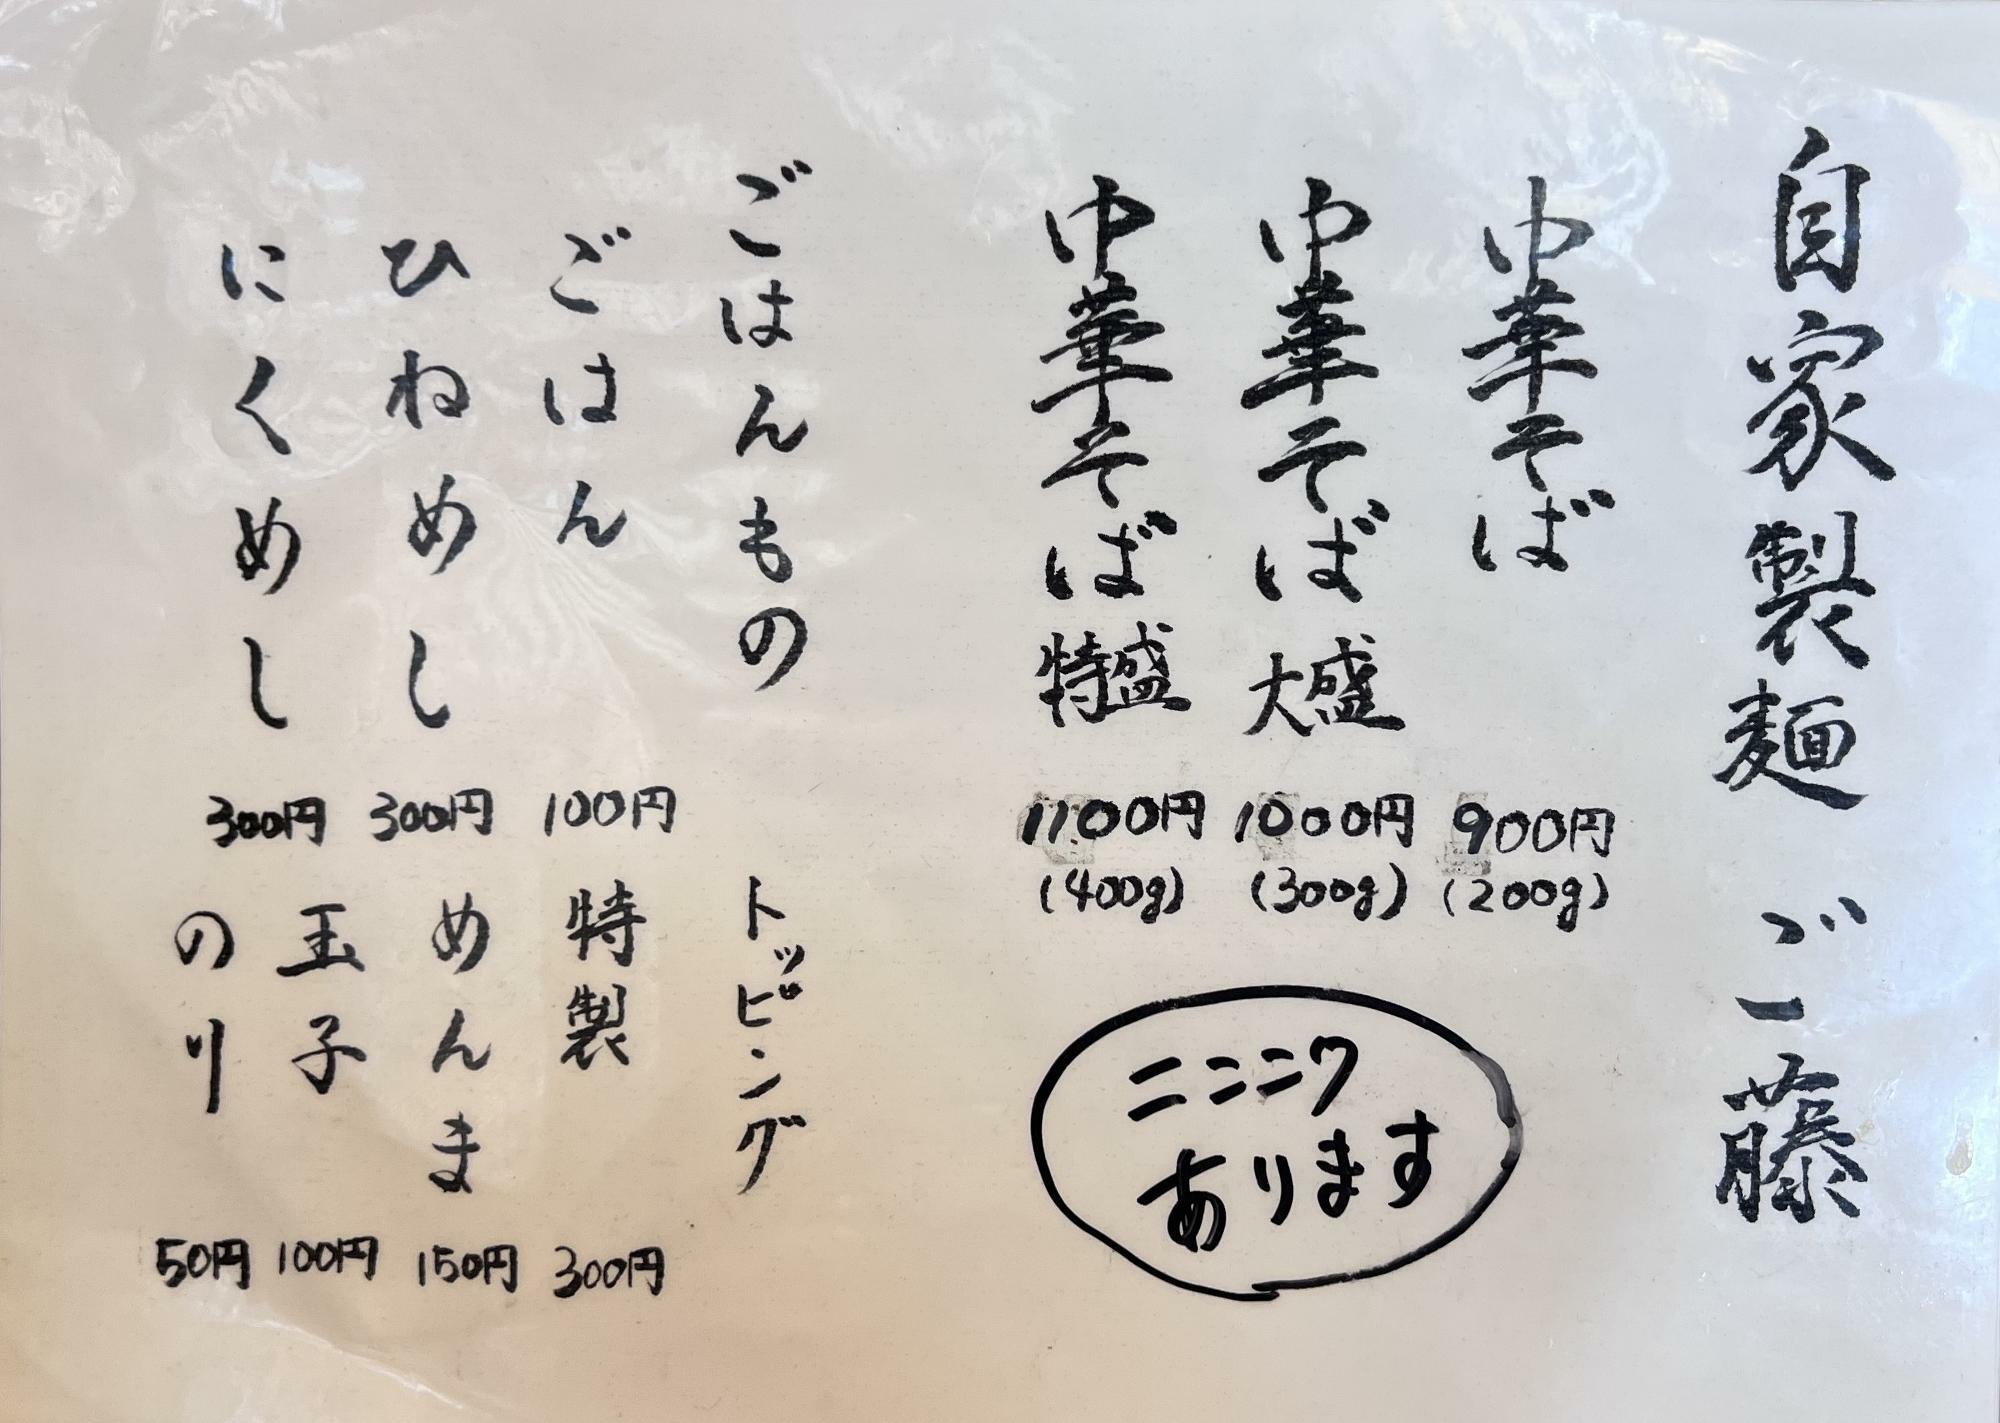 自家製麺 ご一藤
中華そば 900円
(200g)
中華そば 大盛 1000円
(300g)
中華そば 特盛 1100円
(400g)
ニンニク
あります
ごはんもの
ごはん 100円
ひねめし 300円
にくめし 300円
トッピング
特製 300円
めんま 150円
玉子 100円
のり 50円